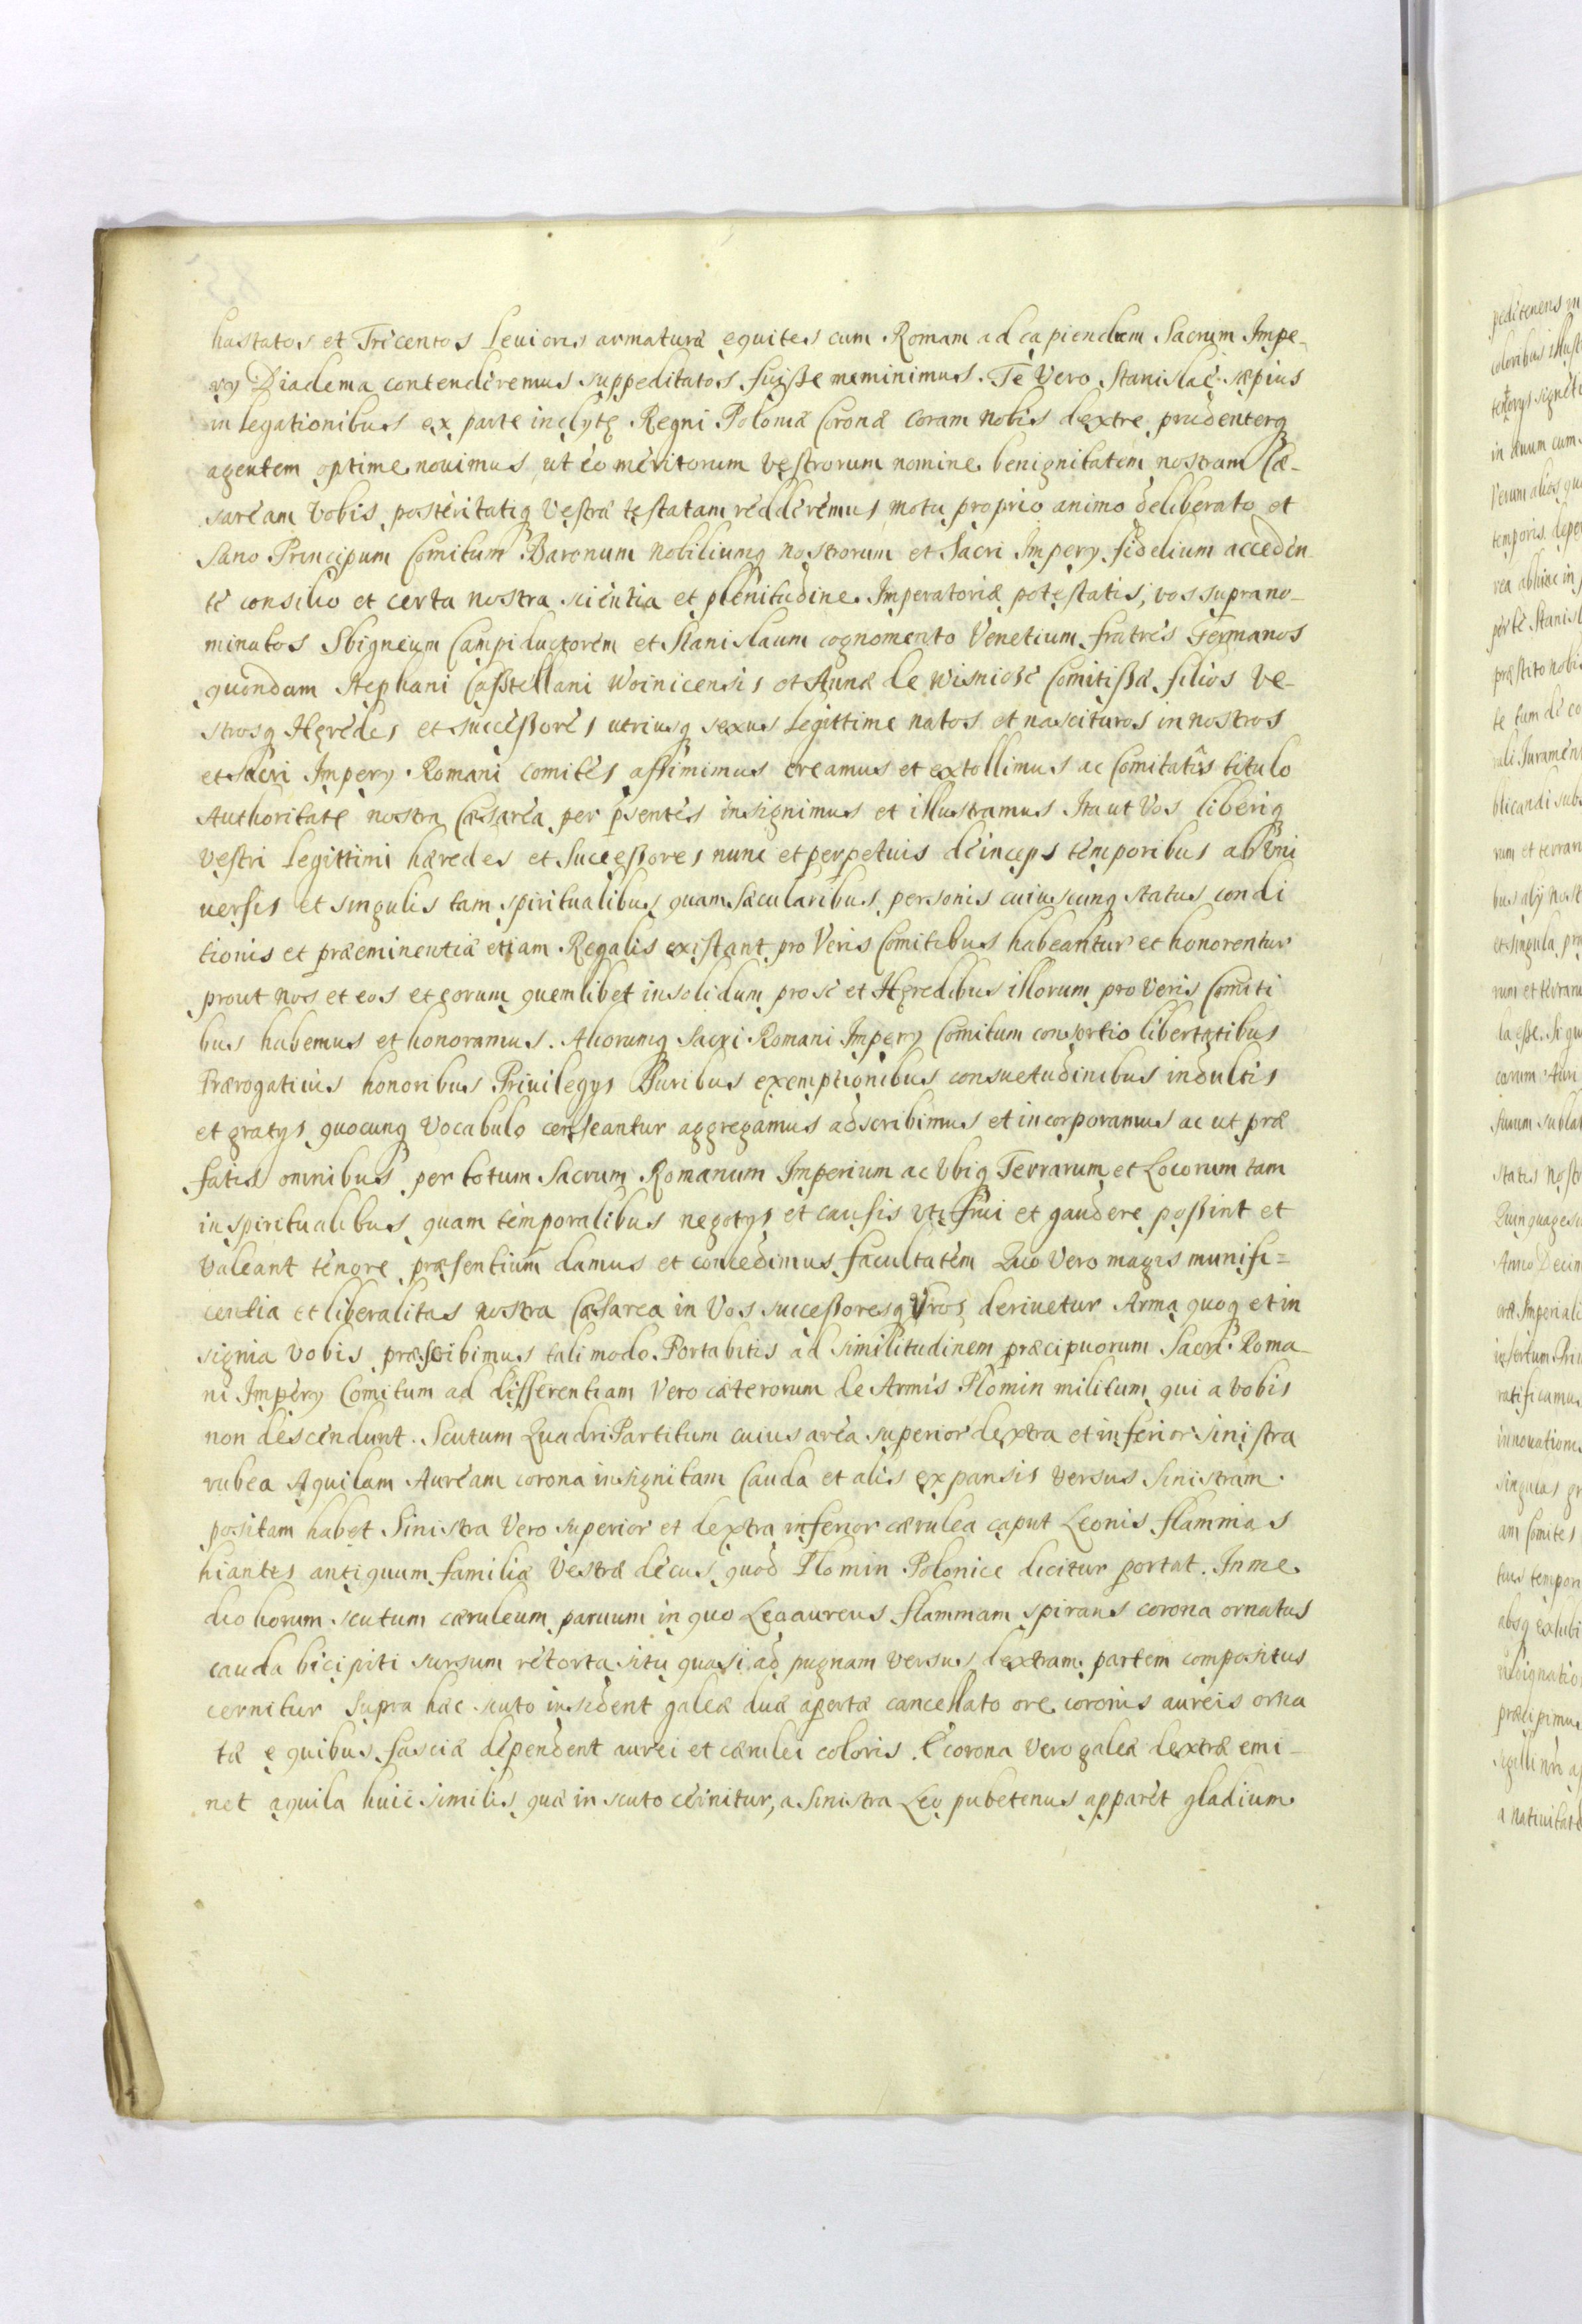 hastatos et Tricentos levioris armaturæ equites cum Romam ad capiendum Sacrum Impe-
ry Diadema contenderemus suppeditatos fuisse meminimus. Te Vero Stanislaë sæpius
in legationibus ex parte inclytę Regni Poloniæ Coronæ coram nobis dextre prudenterq
agentem optime nouimus, ut eo meritorum vestrorum nomine benignitatem nostram Cæ-
saream Vobis posteritatiq Vestræ testatam redderemus motu proprio animo deliberato et
Sano Principum Comitum Baronum Nobiliumq nostrorum et Sacri Impery fidelium acceden
te consilio et certa nostra scientia et plenitudine Imperatoriæ potestatis, vos suprano-
minatos Sbigneum Campiductorem et Stanislaum cognomento Venetium fratres Germanos
quondam Stephani Casstellani Woinicensis et Annæ de Wisniosc Comitissæ filios ve-
strosq Hęredes et successores utriusq sexus legittime natos et nascituros in nostros
et Sacri Impery Romani comites assimimus creamus et extollimus ac Comitatûs titulo
Authoritate nostra Cæsarea per psentes insignimus et illustramus Ita ut Vos liberiq
vestri legittimi hæredes et Successores nunc et perpetuis deinceps temporibus ab Vni
uersis et singulis tam spiritualibus quam sæcularibus personis cuiuscunq status condi
tionis et præeminentiæ etiam Regalis existant pro Veris Comitibus habeantur et honorentur
prout nos et eos et eorum quemlibet insolidum pro se et Hęredibus illorum pro Veris Comiti
bus habemus et honoramus. Aliorumq Sacri Romani Impery Comitum consortio libertatibus
Prærogatiuis honoribus Priuilegys Iuribus exemptionibus consuetudinibus indultis
et gratys quocunq Vocabulo censeantur aggregamus adscribimus et incorporamus ac ut præ
fatis omnibus per totum Sacrum Romanum Imperium ac Vbiq Terrarum et Locorum tam
in spiritualibus quam temporalibus negotys et causis uti frui et gaudere possint et
Valeant tenore præsentium damus et concedimus facultatem Quo Vero magis munifi=
centia et liberalitas nostra Cæsarea in Vos successoresq Vros deriuetur Arma quoq et in
signia vobis præscribimus tali modo. Portabitis ad similitudinem præcipuorum Sacri Roma
ni Impery Comitum ad differentiam Vero cæterorum de Armis Plomin militum qui a vobis
non descendunt. Scutum QuadriPartitum cuius area superior dextra et inferior sinistra
rubea Aquilam Auream corona insignitam Cauda et alis expansis versus Sinistram
positam habet Sinistra Vero superior et dextra inferior cærulea caput Leonis flammas
hiantes antiquum familiæ Vestræ decus quod Plomin Polonice dicitur portat. In me
dio horum scutum cæruleum paruum in quo Leo aureus flammam spirans corona ornatus
cauda bicipiti sursum retorta situ quasi ad pugnam versus dextram partem compositus
cernitur Supra hæc scuto insident galeæ duæ apertæ cancellato ore coronis aureis orna
tæ e quibus fasciæ dependent aurei et cærulei coloris. E corona vero galeæ dextræ emi-
net aquila huic similis quæ in scuto cernitur, a Sinistra Leo pubetenus apparet gladium